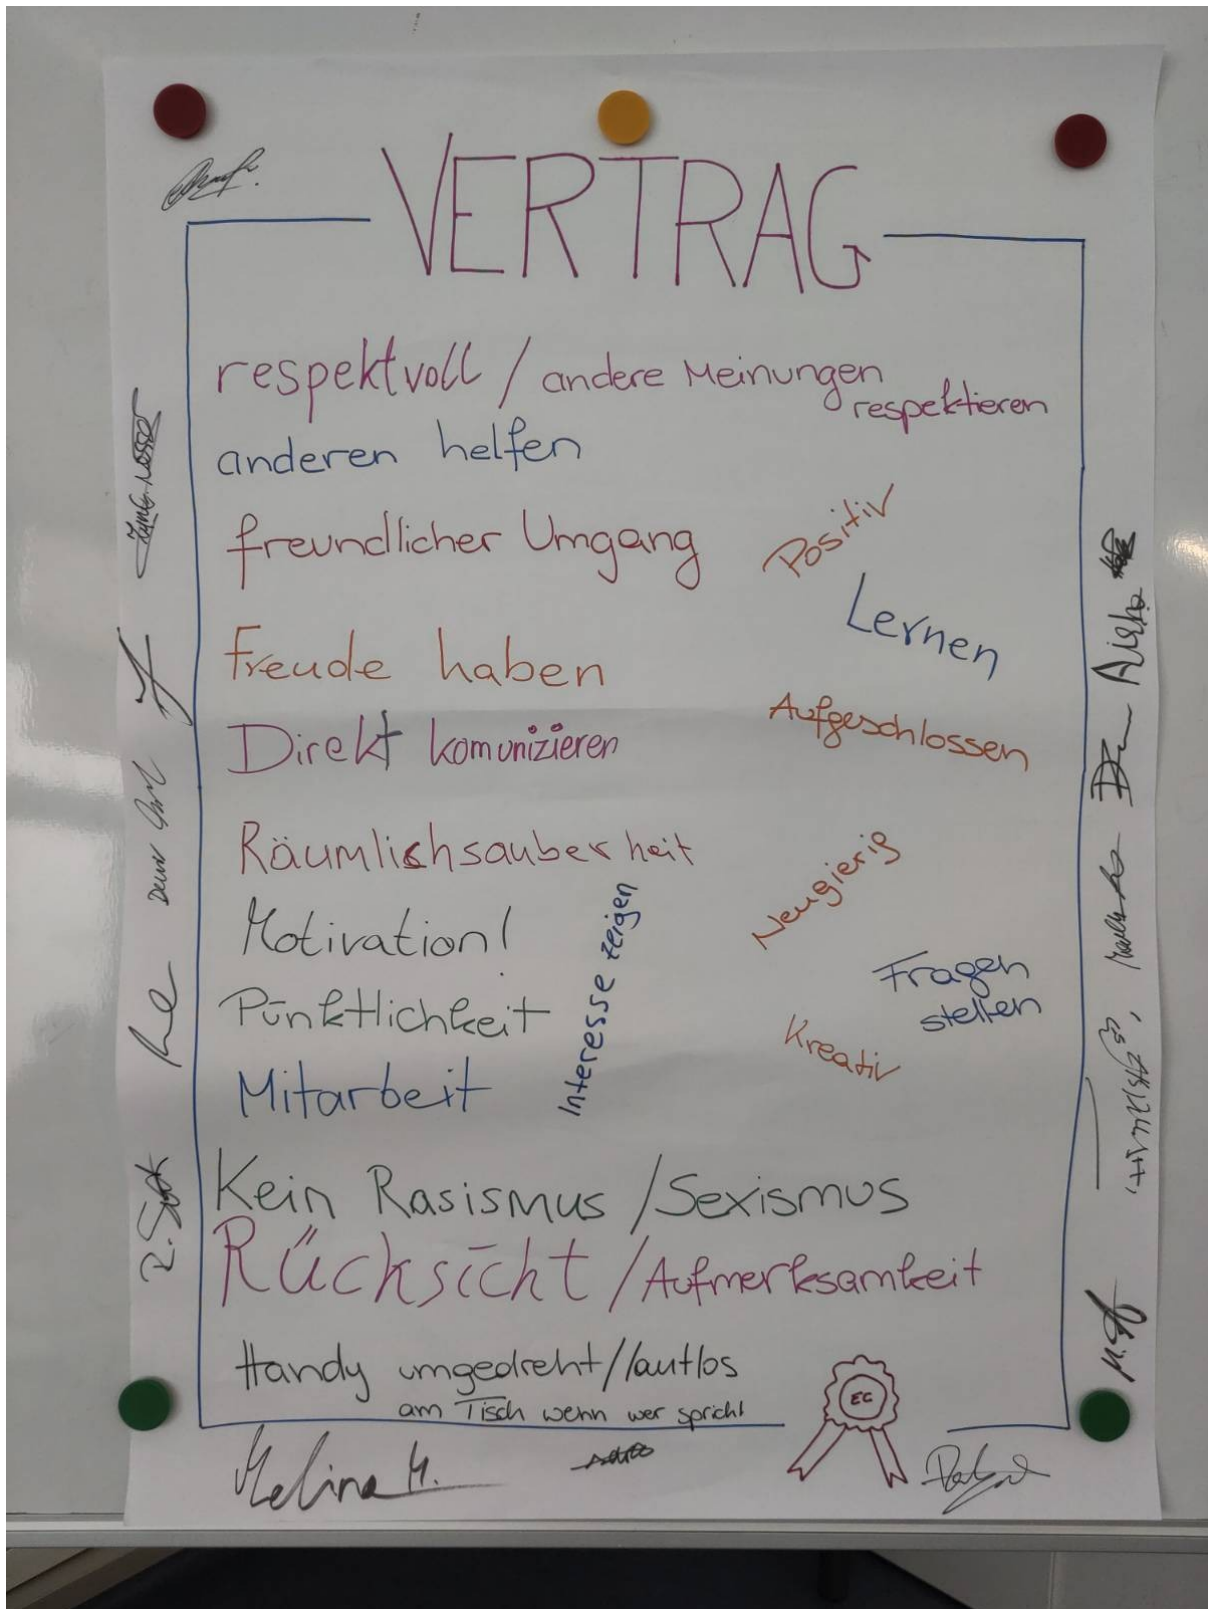 VERTRAG
respektvoll / andere Meinungen
respektieren
anderen helfen
freundlicher Umgang
Positiv
Lernen
Freude haben
Aufgeschlossen
Direkt komunizieren
Räumlichsauberkeit
Neugierig
Motivation!
Interesse zeigen
Fragen
stellen
Pünktlichkeit
Kreativ
Mitarbeit
Kein Rasismus / Sexismus
Rücksicht / Aufmerksamkeit
Handy umgedreht/lautlos
am Tisch wenn wer spricht
EG
Melina H.
Aisha